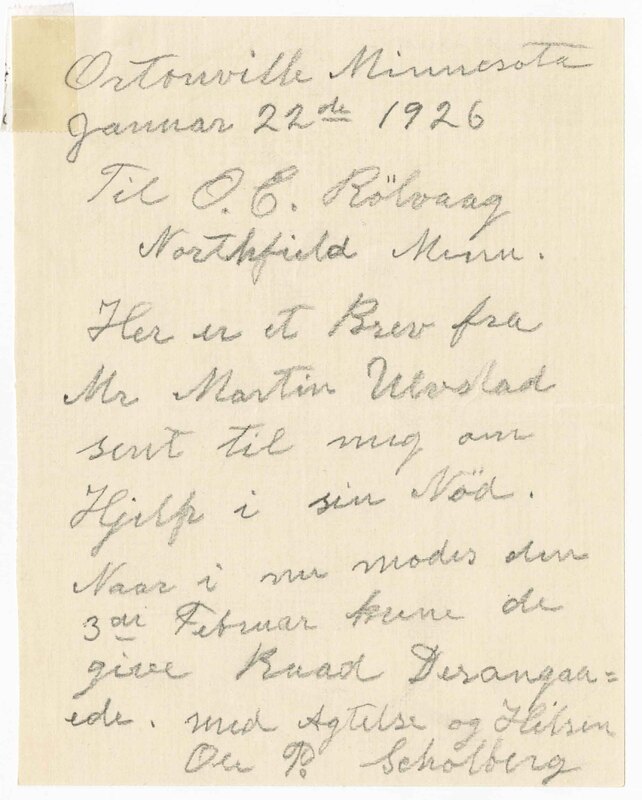 Ortonville Minnesota
Januar 22de 1926
Til O. E. Rölvaag
Northfield Minn.
Her er et Brev fra
Mr Martin Ulvestad
sent til mig om
Hjelp i sin Nöd.
Naar i nu modes den
3di Februar kune de
give Raad Derangaa=
ede. med Agtelse og Hilsen
Ole P. Scholberg